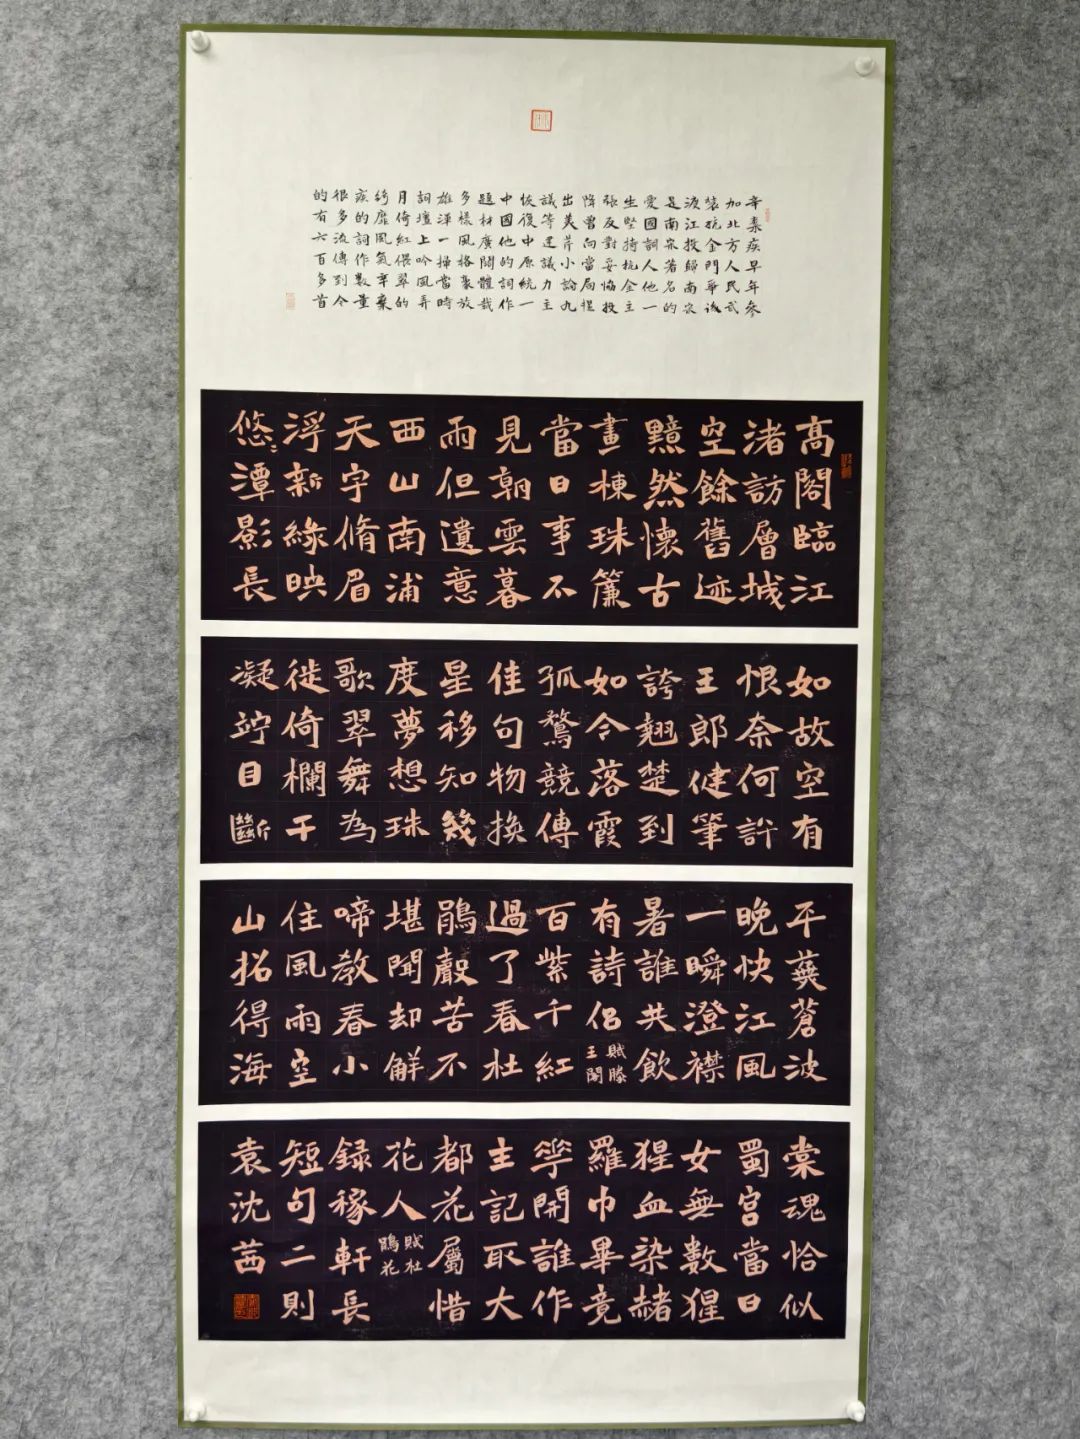 辛棄疾早年參
加北方人民武
裝抗金鬥爭後
渡江投歸南宋
是南宋著名的
愛國詞人他一
生堅持抗金主
張反對妥協投
降曾向當局提
出美芹小論九
議等建議力主
恢復中原統一
中國他的詞作
題材廣闊體裁
多樣風格豪放
雄渾一掃當時
詞壇上吟風弄
月倚紅偎翠的
綺靡風氣辛棄
疾的詞作數量
很多流傳到今
的有六百多首
高閣臨江
渚訪層城
空餘舊迹
黯然懷古
畫棟珠簾
當日事不
見朝雲暮
雨但遺意
西山南浦
天宇脩眉
浮新綠映
悠悠潭影長
如故空有
恨奈何許
王郎健筆
誇翹楚到
如今落霞
孤鶩競傳
佳句物換
星移知幾
度夢想珠
歌翠舞為
徙倚欄干
凝竚目斷
平蕪蒼波
晚快江風
一瞬澄襟
暑誰共飲
有詩侶賦滕王閣
百紫千紅
過了春杜
鵑聲苦不
堪聞却解
啼教春小
住風雨空
山招得海
棠魂恰似
蜀宮當日
女無數猩
猩血染赭
羅巾畢竟
花開誰作
主記取大
都花屬惜
花人賦杜鵑花
録稼軒長
短句二則
袁沈茜